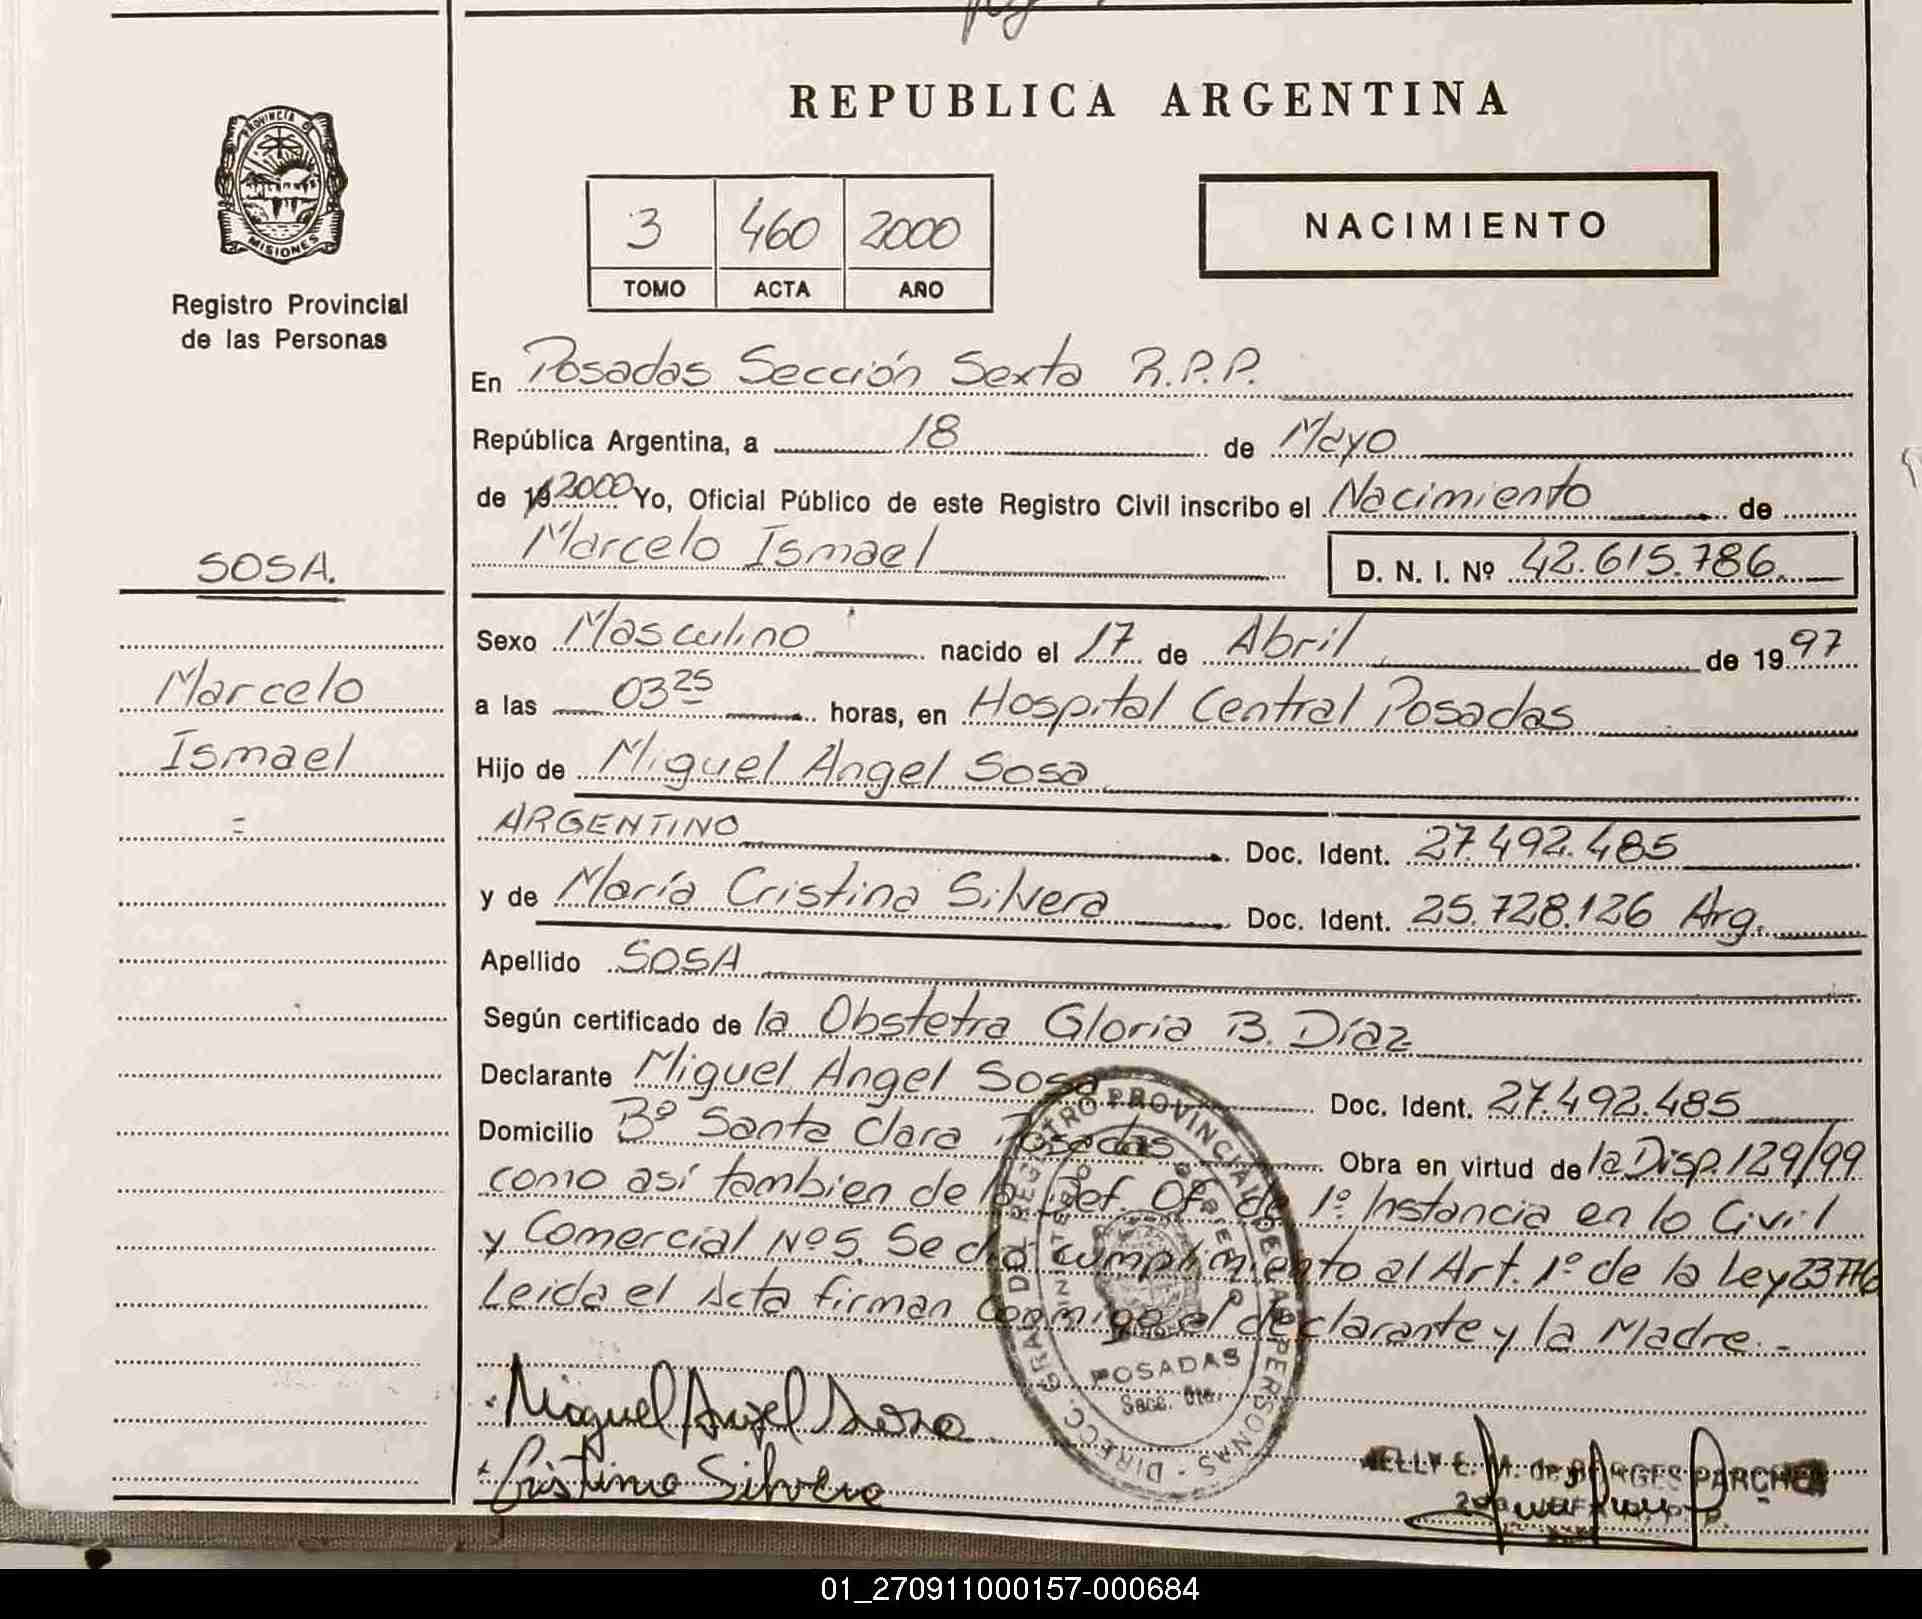 REPUBLICA ARGENTINA
PROVINCIA DE
MISIONES
Registro Provincial
de las Personas
3 460 2000
TOMO ACTA AÑO
NACIMIENTO
En Posadas Sección Sexta R.P.P.
República Argentina, a 18 de Mayo
de 19 2000 Yo, Oficial Público de este Registro Civil inscribo el Nacimiento de
Marcelo Ismael D. N. I. Nº 42.615.786
SOSA.
Marcelo
Ismael
Sexo Masculino nacido el 17 de Abril de 1997
a las 03 25 horas, en Hospital Central Posadas
Hijo de Miguel Angel Sosa
ARGENTINO Doc. Ident. 27.492.485
y de María Cristina Silvera Doc. Ident. 25.728.126 Arg.
Apellido SOSA
Según certificado de la Obstetra Gloria B. Díaz
Declarante Miguel Angel Sosa Doc. Ident. 27.492.485
Domicilio Bº Santa Clara Posadas Obra en virtud de la Disp. 129/99
como así tambien de la Def. Of. de 1º Instancia en lo Civil
y Comercial Nº5. Se dió cumplimiento al Art. 1º de la Ley 23776
Leida el Acta firman conmigo el declarante y la Madre.-
DIRECC. GRAL. DEL REGISTRO PROVINCIAL DE LAS PERSONAS
MINISTERIO DE GOBIERNO
POSADAS
Secc. 6ta.
Miguel Angel Sosa
Cristina Silvera
NELLY E. M. de BORGES PARCHEN
01_270911000157-000684